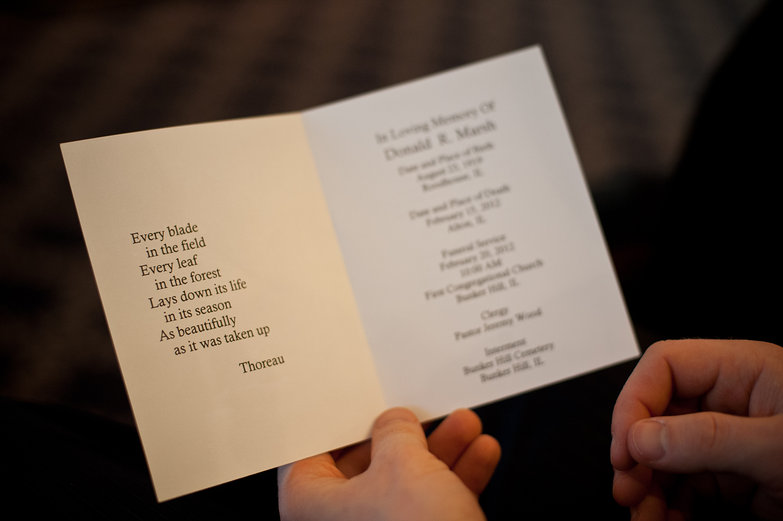 Every blade
in the field
Every leaf
in the forest
Lays down its life
in its season
As beautifully
as it was taken up
Thoreau
In Loving Memory Of
Donald R. Marsh
Date and Place of Birth
August 23, 1919
Roodhouse, IL
Date and Place of Death
February 15, 2012
Alton, IL
Funeral Service
February 20, 2012
10:00 AM
First Congregational Church
Bunker Hill, IL
Clergy
Pastor Jeremy Wood
Interment
Bunker Hill Cemetery
Bunker Hill, IL